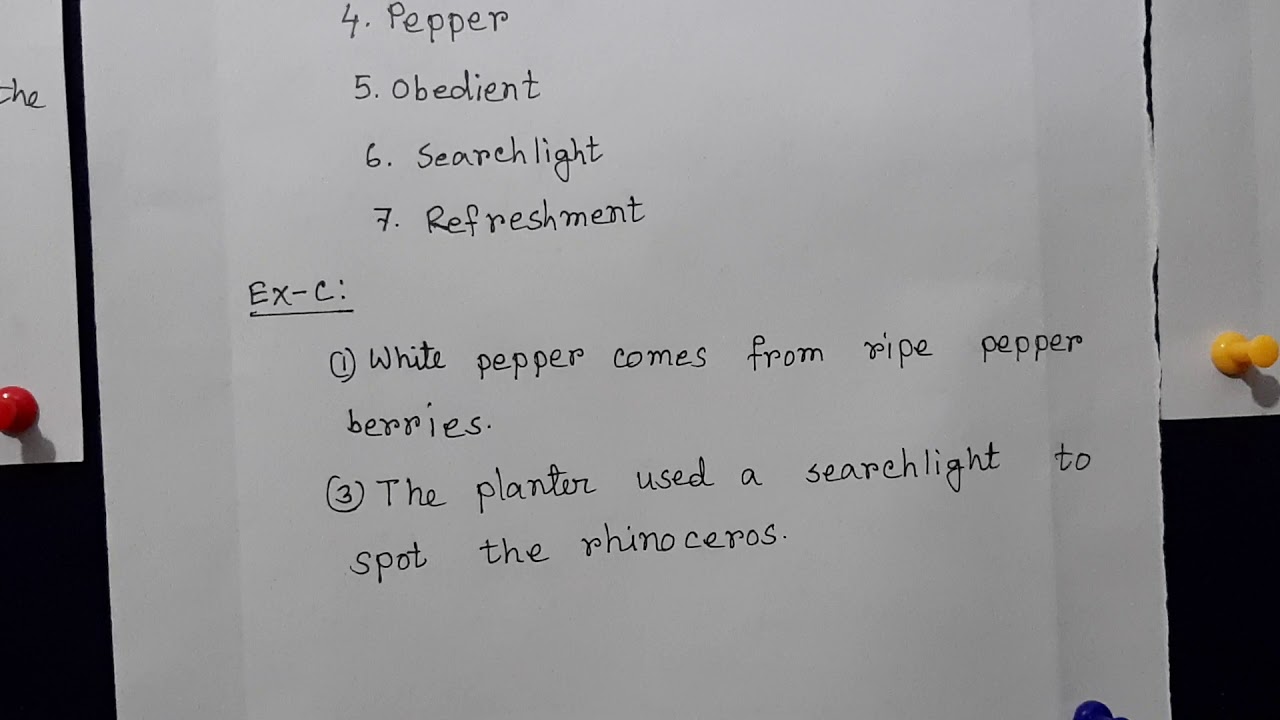 the
4. Pepper
5. Obedient
6. Searchlight
7. Refreshment
Ex-C:
(1) White pepper comes from ripe pepper
berries.
(3) The planter used a searchlight to
spot the rhinoceros.